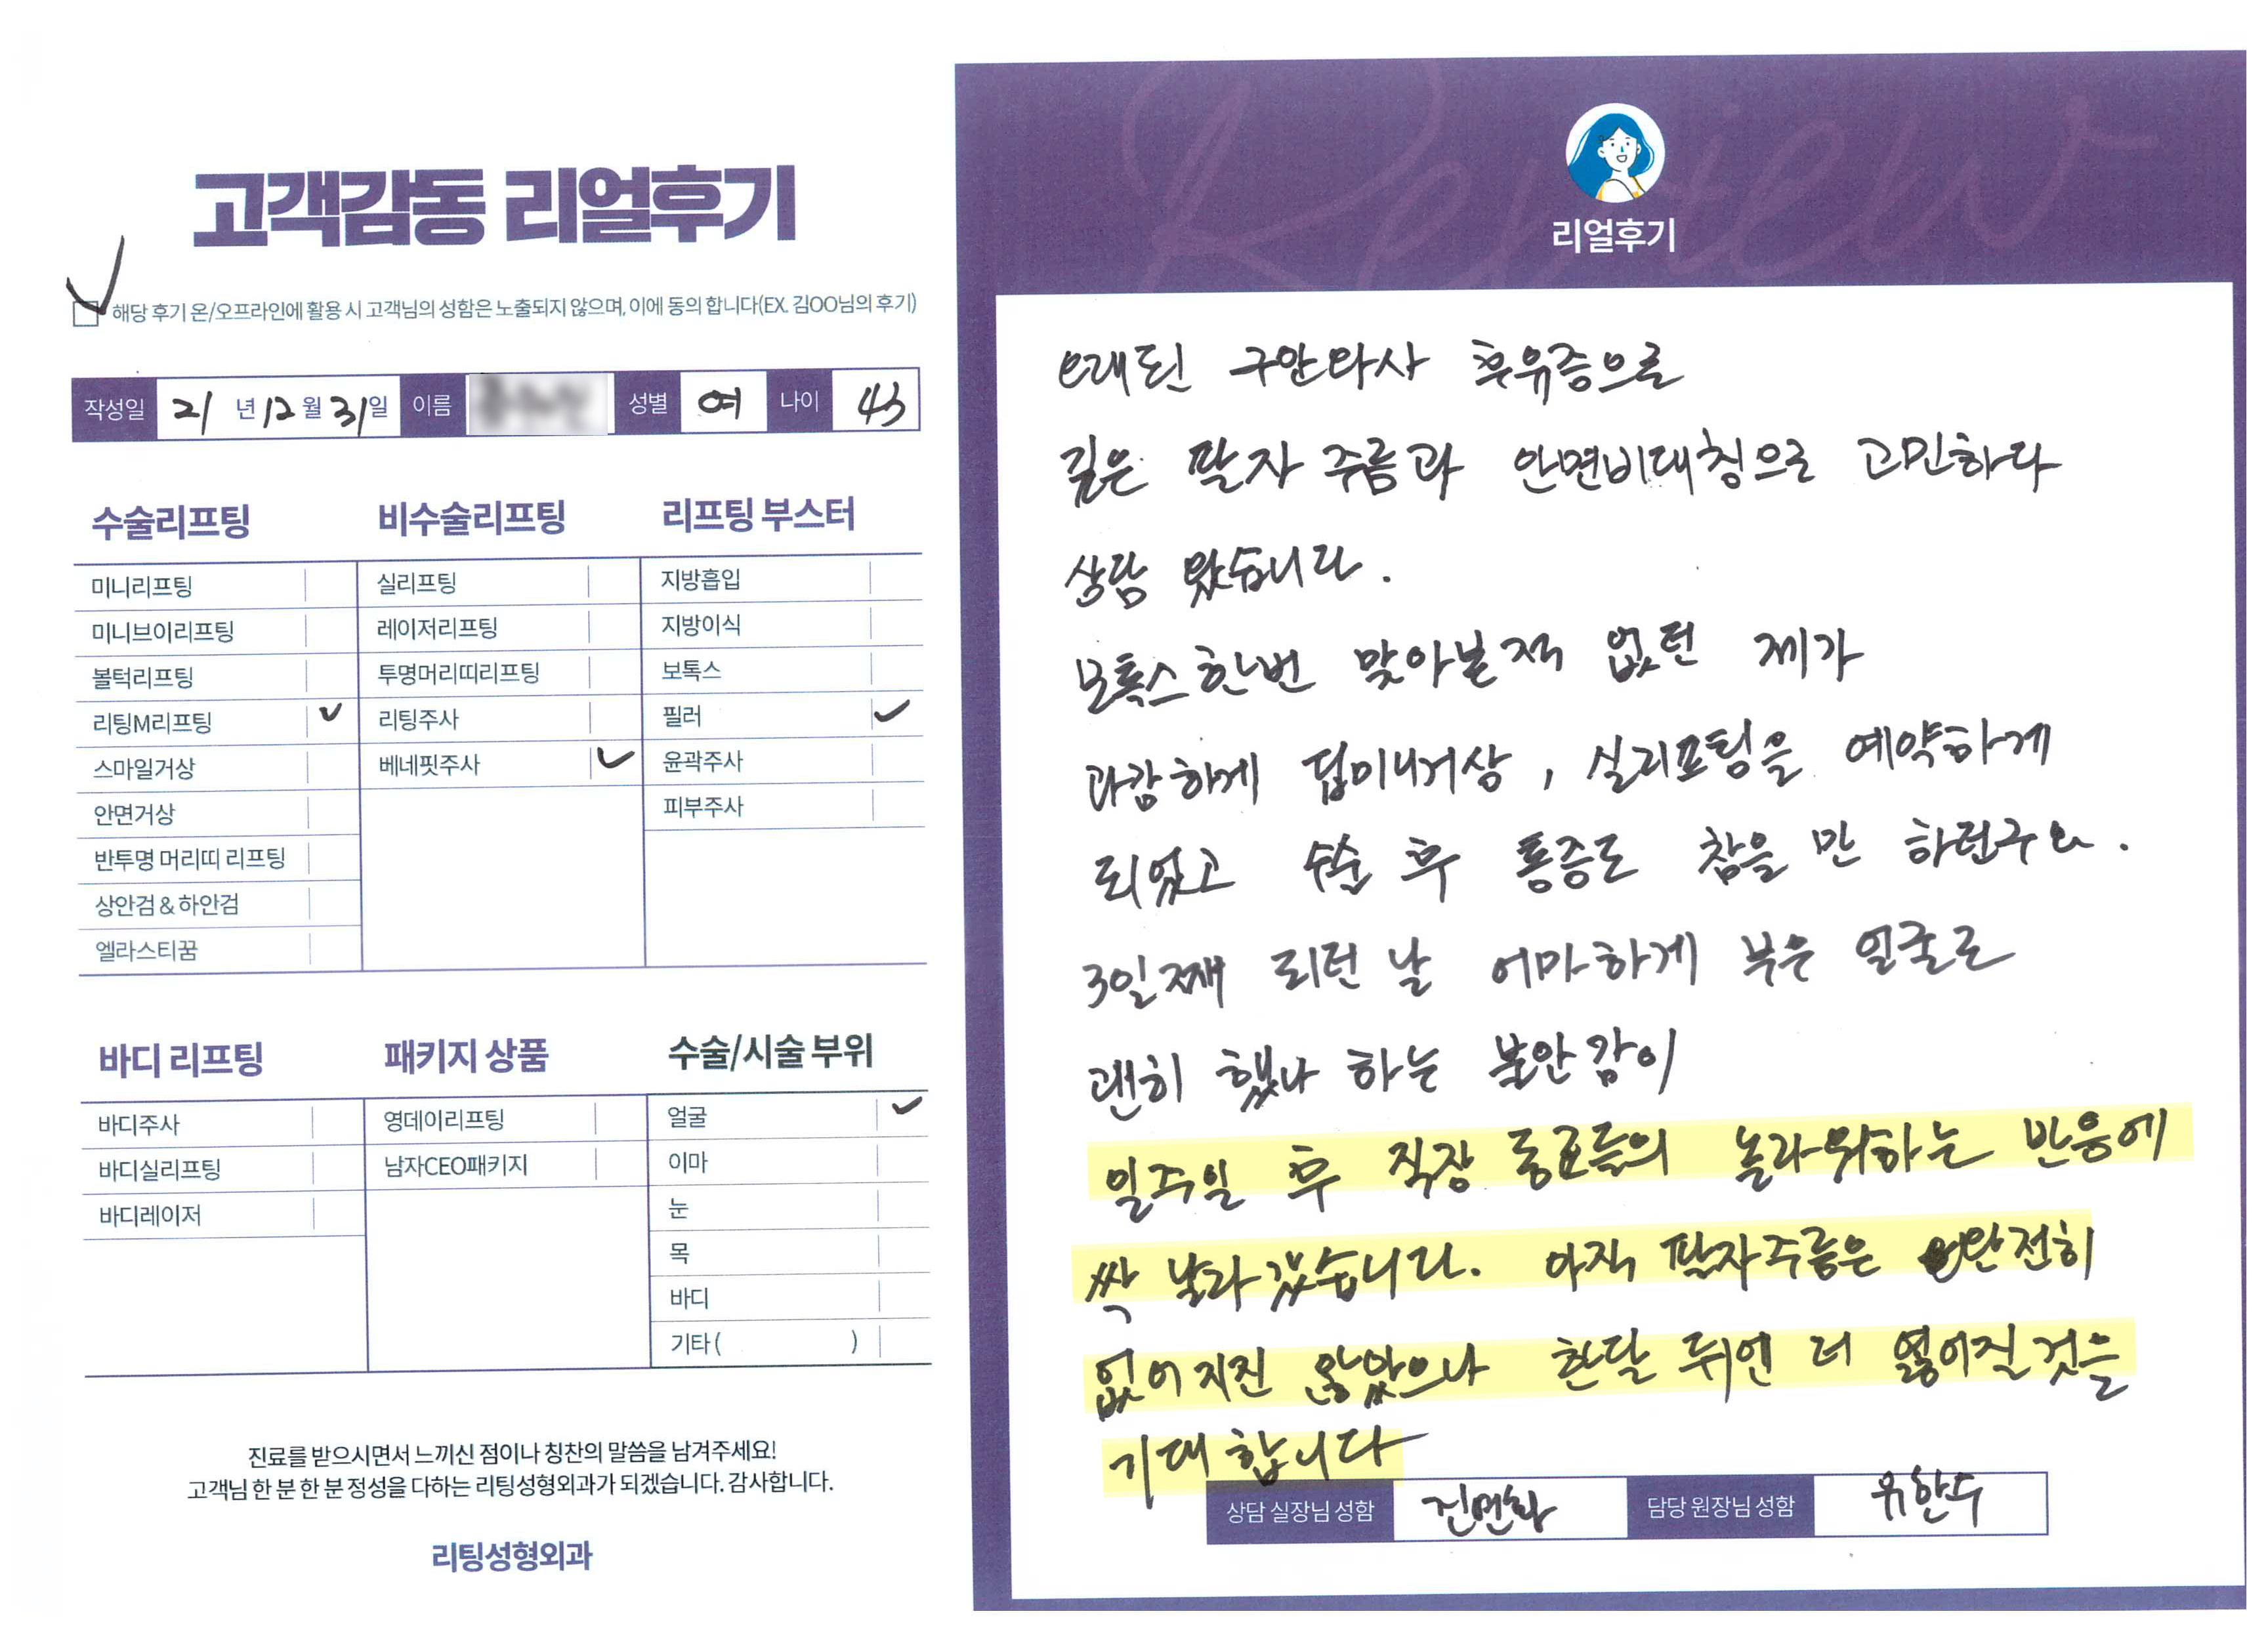 고객감동 리얼후기
해당 후기 온/오프라인에 활용 시 고객님의 성함은 노출되지 않으며, 이에 동의 합니다(EX. 김OO님의 후기)
작성일 21 년 12 월 31 일 이름 성별 여 나이 43
수술리프팅
미니리프팅
미니브이리프팅
볼턱리프팅
리팅M리프팅
스마일거상
안면거상
반투명 머리띠 리프팅
상안검 & 하안검
엘라스티꿈
비수술리프팅
실리프팅
레이저리프팅
투명머리띠리프팅
리팅주사
베네핏주사
리프팅 부스터
지방흡입
지방이식
보톡스
필러
윤곽주사
피부주사
바디 리프팅
바디주사
바디실리프팅
바디레이저
패키지 상품
영데이리프팅
남자CEO패키지
수술/시술 부위
얼굴
이마
눈
목
바디
기타( )
진료를 받으시면서 느끼신 점이나 칭찬의 말씀을 남겨주세요!
고객님 한 분 한 분 정성을 다하는 리팅성형외과가 되겠습니다. 감사합니다.
리팅성형외과
Review
리얼후기
오래된 구안와사 후유증으로
깊은 팔자 주름과 안면비대칭으로 고민하다
상담 왔습니다.
보톡스 한번 맞아본적 없던 제가
과감하게 딥미니거상, 실리프팅을 예약하게
되었고 수술 후 통증도 참을 만 하던구요.
3일째 되던 날 어마하게 부은 얼굴로
괜히 했나 하는 불안감이
일주일 후 직장 동료들의 놀라워하는 반응에
싹 날라갔습니다. 아직 팔자주름은 완전히
없어지진 않았으나 한달 뒤엔 더 옅어질것을
기대합니다
상담 실장님 성함 진연화 담당 원장님 성함 유한수